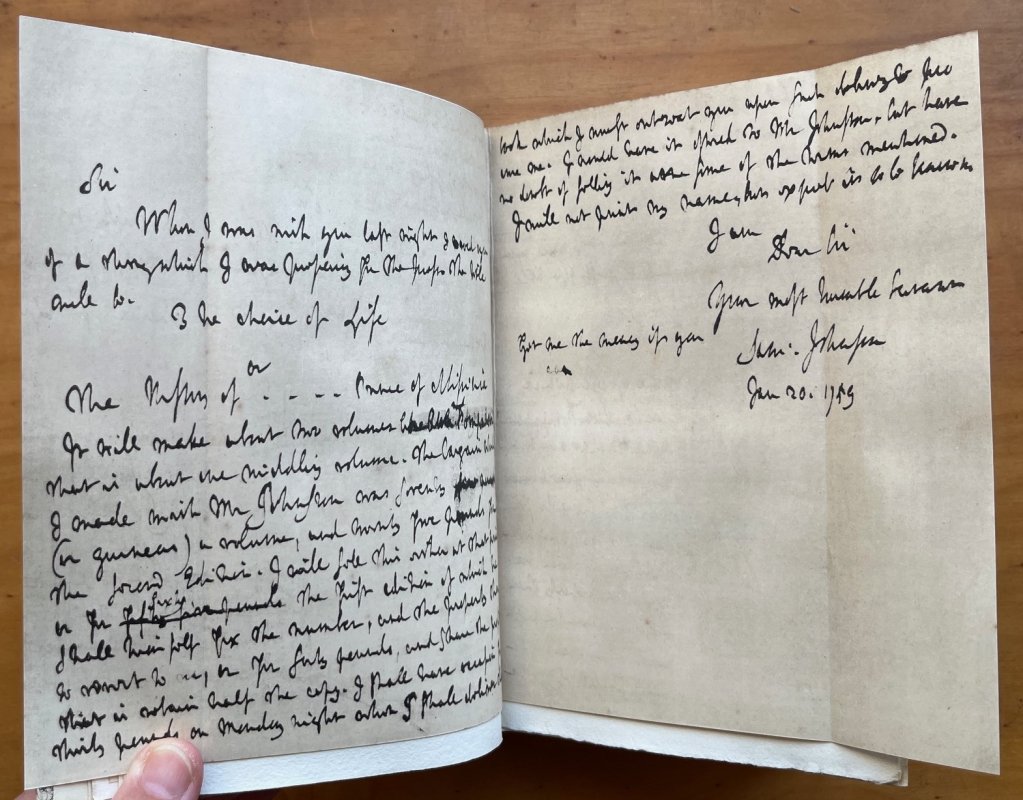 Sir
When I was with you last night I told you
of a thing which I was preparing for the Press. The title
will be
The choice of Life
or
The History of . . . . Prince of Abissinia
It will make about two volumes like little Pompadour
that is about one middling volume. The bargain which
I made with Mr Johnston was seventy five pounds
(or guineas) a volume, and twenty five pounds for
the second Edition. I will sell this either at that price
or for sixty the first edition of which he
shall himself fix the number, and the property then
to revert to me, or for forty pounds, and share the profit
that is retain half the copy. I shall have occasion for
thirty pounds on Monday night when I shall deliver the
book which I must entreat you upon such delivery to procure
me. I would have it offered to Mr Johnston, but have
no doubt of selling it on some of the terms mentioned.
I will not print my name, but expect it to be known.
I am
Dear Sir
Your most humble servant
Sam: Johnson
Jan 20. 1759
Get me the money if you
can